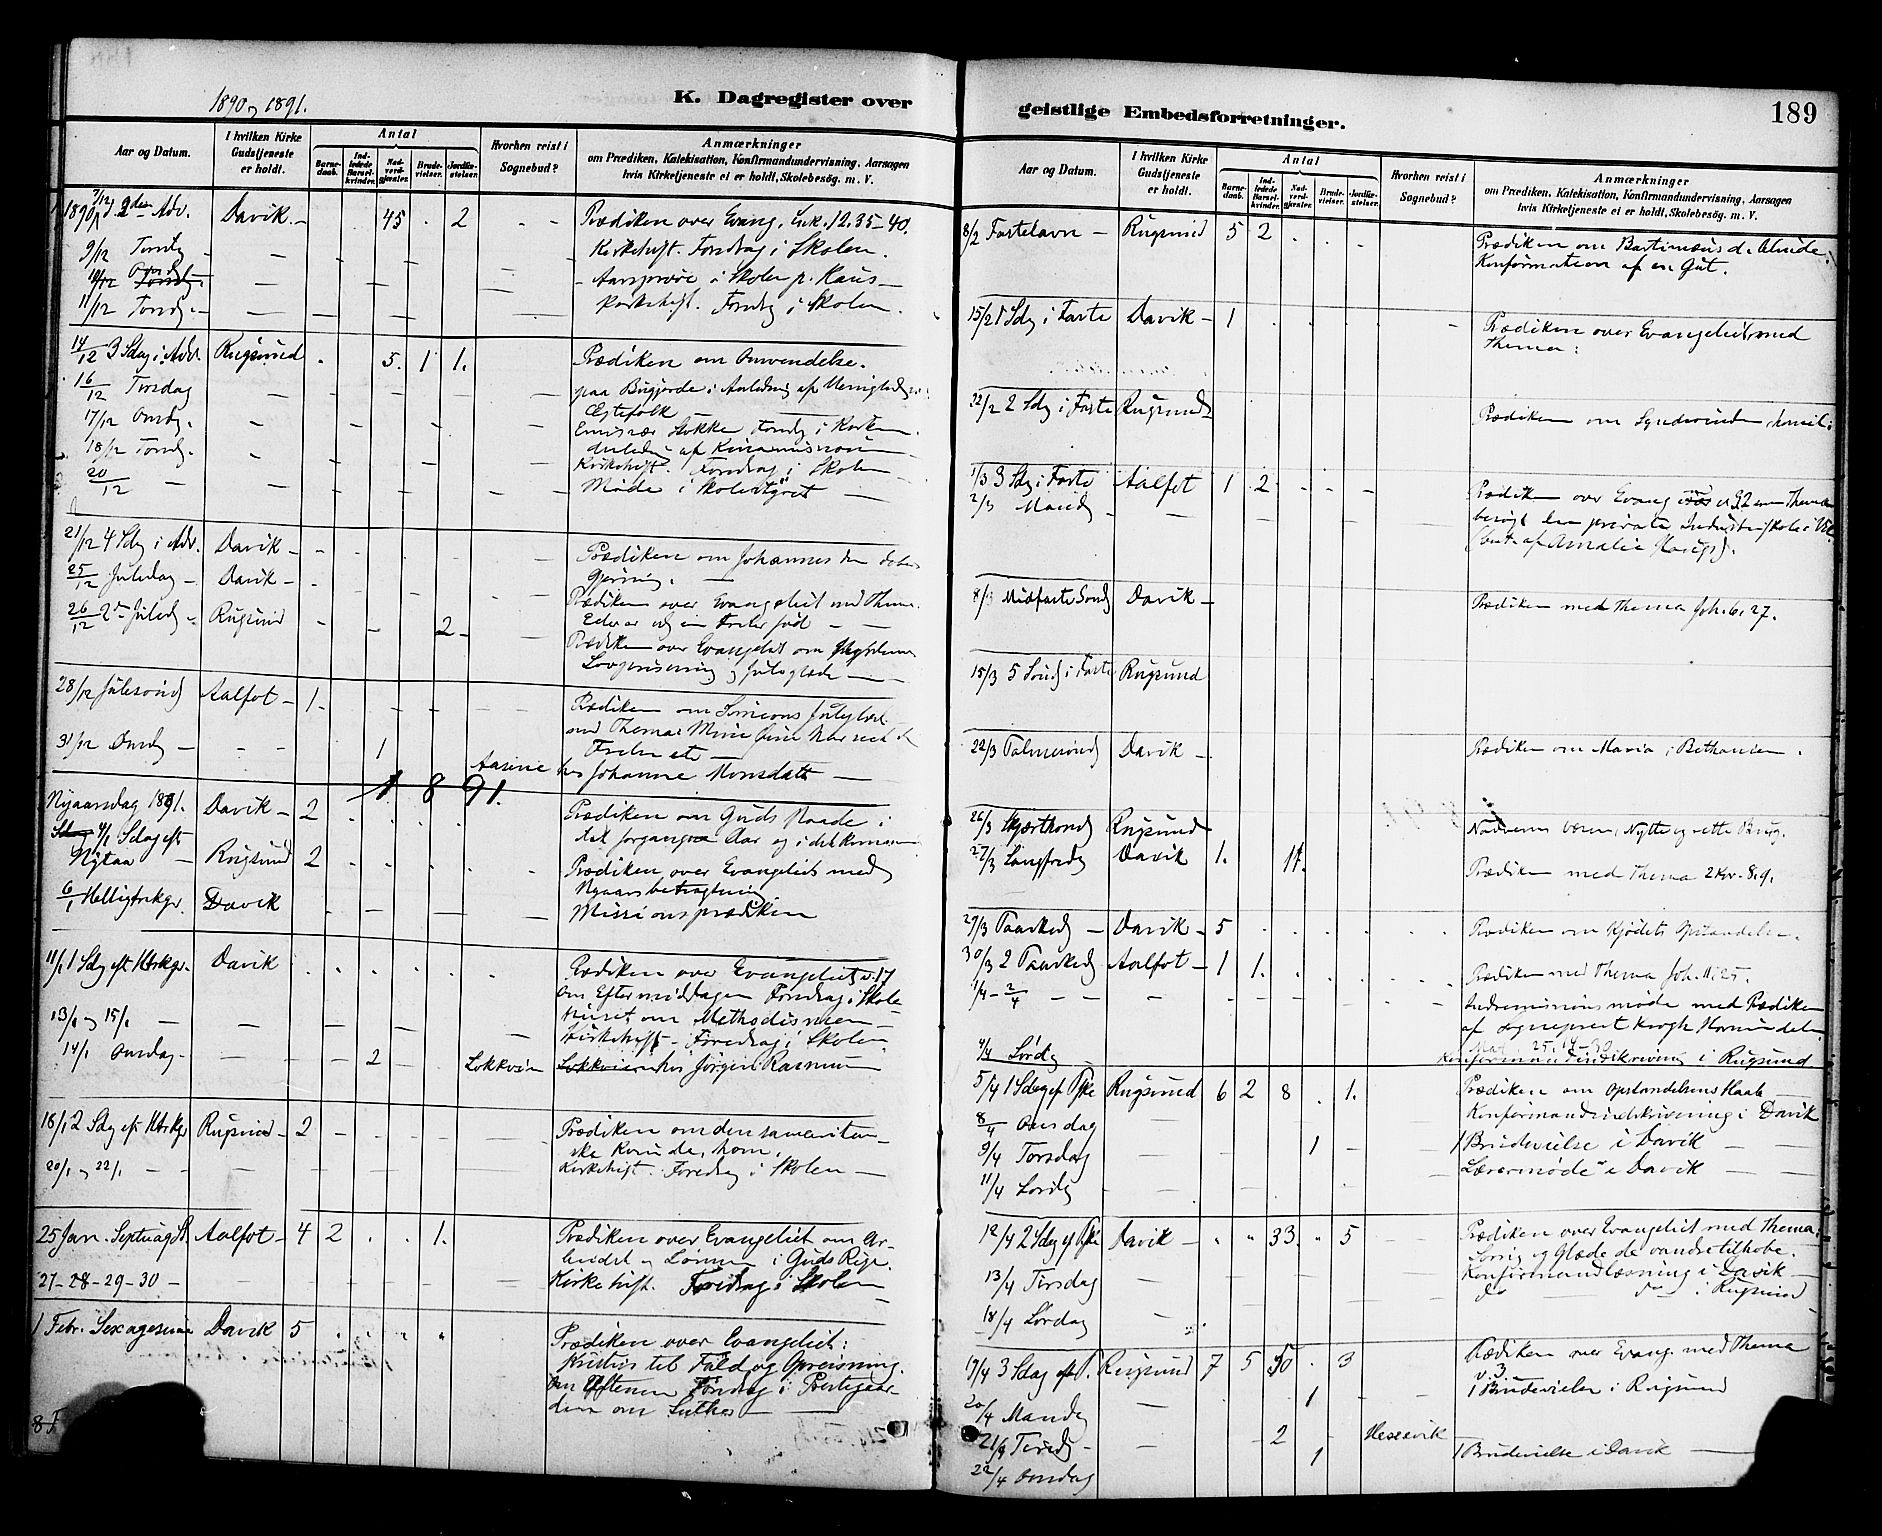 1890 og 1891.
K. Dagregister over
Aar og Datum.
I hvilken Kirke Gudstjeneste er holdt.
Antal
Barnedaab.
Indledede Barselkvinder.
Nadverdgjester.
Brudevielser.
Jordfæstelser.
Hvorhen reist i Sognebud?
Anmærkninger
om Prædiken, Katekisation, Konfirmandundervisning, Aarsagen
hvis Kirketjeneste ei er holdt, Skolebesøg. m. V.
1890 7/12 2den Adv. Davik. — 45 . 2 Prædiken over Evang. Luk. 12. 35-40.
9/12 Tirsdg — Kirkehift. Foredrag i Skolen.
10/12 Onsd. — Aarsprøve i Skolen p. Haus —
11/12 Torsdg. — Kirkehift. Foredrag i Skolen.
14/12 3 Sdag i Adv. Rugsund 5. 1 1. Prædiken om Omvendelse.
16/12 Tirsdag — paa Bugjerde i Anledning af
Ægtefolk
17/12 Onsdg. — Emissær Stokke Foredg i Kirken
18/12 Torsdg. — Kirkehift. Foredrag i Skolen
20/12 — Møde i Skolestyret —
21/12 4 Sdg i Adv. Davik — Prædiken om Johannes den
Gjerning. —
25/12 Juledag — Davik — Prædiken over Evangeliet med Thema
26/12 2den Juledg Rugsund 2 Prædiken over Evangeliet om
Lovprisning og Juleglæde —
28/12 Julesønd Aalfot — 1 Prædiken om Simeons
med Thema: Mine
31/12 Onsdg — 1
hos Johanne Monsdatt —
1891.
Nyaarsdag 1891. Davik — 2 Prædiken om Guds Naade i
det forgangne Aar og i det
4/1 Sdag eft Nytaar — Rugsund 2 Prædiken over Evangeliet med
Nyaarsbetragtning
6/1 Helligtrekgr Davik Missionsprædiken
11/1 1 Sdg eft Htrkgr. Davik Prædiken over Evangeliet v. 17
Om Eftermiddagen Foredrag i Skole
huset om Methodismen —
13/1 og 15/1 — Kirkehift — Foredrag i Skolen
14/1 Onsdag — 2 hos Jørgen Rasmus
18/1 2 Sdg eft Htrkgr Rugsund — 2 Prædiken om den samaritan-
ske Kvinde, hom.
20/1 og 22/1 — Kirkehift. Foredrag i Skolen —
25 Jan. Septuag Sd Aalfot — 4 2 . . 1. Prædiken over Evangeliet om Ar-
beidet og Lønnen i Guds Rige.
27-28-29-30 — Kirkehift. Foredrag i Skolen
1 Febr. Sexagesima Davik 5 Prædiken over Evangeliet:
Kristus til Fald og Opreisning.
Om Aftenen Foredrag i Prestegaar-
den om Luther —
8 F
geistlige Embedsforretninger.
189
Aar og Datum.
I hvilken Kirke Gudstjeneste er holdt.
Antal
Barnedaab.
Indledede Barselkvinder.
Nadverdgjester.
Brudevielser.
Jordfæstelser.
Hvorhen reist i Sognebud?
Anmærkninger
om Prædiken, Katekisation, Konfirmandundervisning, Aarsagen
hvis Kirketjeneste ei er holdt, Skolebesøg. m. V.
8/2 Fastelavn — Rugsund 5 2 Prædiken om Bartimæus d. blinde.
Konfirmation af en Gut.
15/2 1 Sdg i Faste Davik — 1 Prædiken over Evangeliet med
Thema:
22/2 2 Sdg i Faste Rugsund Prædiken om
1/3 3 Sdg i Faste Aalfot 1 2 Prædiken over Evang som Thema
2/3 Mandg — besøgt den private Industriskole i
(best. af Amalie
8/3 Midfaste Sønd Davik — Prædiken med Thema Joh. 6. 27.
15/3 5 Sønd i Faste Rugsund
22/3 Palmesønd Davik — Prædiken om Maria i Bethanien.
26/3 Skjærthorsd Rugsund Nadverens væsen, Nytte og rette Brug.
27/3 Langfredg Davik 1. 17. Prædiken med Thema 2 Kor. 8. 9.
29/3 Paaskedg — Davik — 5 Prædiken om Kjødets Opstandelse.
30/3 2 Paaskedg Aalfot — 1 1. Prædiken med Thema Joh. 11. 25.
1/4 - 2/4 — Indremissions møde med Prædiken
af sogneprest Krogh Hornindal
Mat. 25. 14-30
4/4 Lørdg — Konfirmandindskrivning i Rugsund
5/4 1 Sdag ef Pske Rugsund 6 2 8 . 1. Prædiken om Opstandelsens Haab
Konfirmandindskrivning i Davik
8/4 Onsdag
9/4 Torsdag 1 — 1 Brudevielse i Davik —
11/4 Lørdg — Lærermøde i Davik —
12/4 2 Sdg ef Pske Davik — 33 5 Prædiken over Evangeliet med Thema:
Sorg og Glæde de vandre tilhobe.
13/4 Tirsdag Konfirmandlæsning i Davik
18/4 Lørdag — do do i Rugsund
19/4 3 Sdag eft P. Rugsund 7 5 50 . 3 Prædiken over Evang. med Thema
20/4 Mandg — 1 1 Brudevielse i Rugsund
21/4 Tirsdg — 2
22/4 Onsdag 1 1 Brudevielse i Davik —